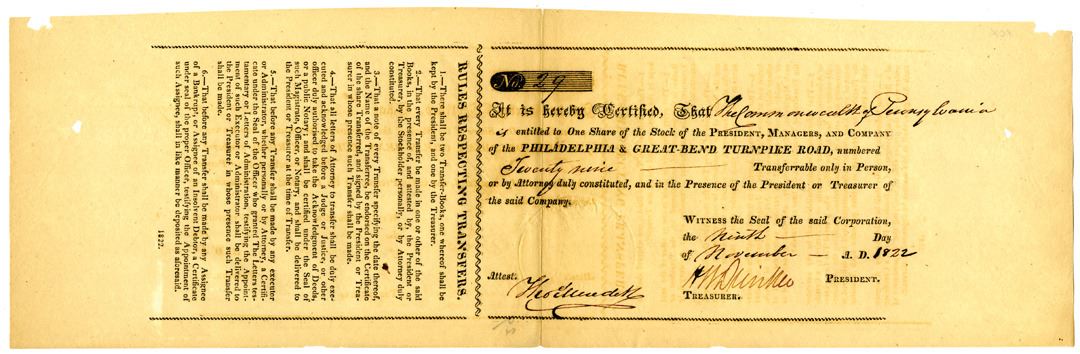 No. 29
It is hereby Certified, That The Commonwealth of Pennsylvania
is entitled to One Share of the Stock of the PRESIDENT, MANAGERS, AND COMPANY
of the PHILADELPHIA & GREAT-BEND TURNPIKE ROAD, numbered
Twenty nine Transferrable only in Person,
or by Attorney duly constituted, and in the Presence of the President or Treasurer of
the said Company.
WITNESS the Seal of the said Corporation,
the Ninth Day
of November A. D. 1822
PRESIDENT.
Attest.
TREASURER.
RULES RESPECTING TRANSFERS.
1.—There shall be two Transfer-Books, one whereof shall be
kept by the President, and one by the Treasurer.
2.—That every Transfer be made in one or other of the said
Books, in the presence of, and attested by, the President or
Treasurer, by the Stockholder personally, or by Attorney duly
constituted.
3.—That a note of every Transfer specifying the date thereof,
and the Name of the Transferree, be endorsed on the Certificate
of the share Transferred, and signed by the President or Trea-
surer in whose presence such Transfer shall be made.
4.—That all letters of Attorney to transfer shall be duly exe-
cuted and acknowledged before a Judge or Justice, or other
officer duly authorised to take the Acknowledgment of Deeds,
or a public Notary; and shall be certified under the Seal of
such Magistrate, Officer, or Notary, and shall be delivered to
the President or Treasurer at the time of Transfer.
5.—That before any Transfer shall be made by any executor
or Administrator, whether personally or by Attorney, a Certifi-
cate under the Seal of the Officer who granted The Letters tes-
tamentary or Letters of Administration, testifying the Appoint-
ment of such Executor or Administrator shall be delivered to
the President or Treasurer in whose presence such Transfer
shall be made.
6.—That before any Transfer shall be made by any Assignee
of a Bankrupt, or Assignee of an Insolvent Debtor, a Certificate
under seal of the proper Officer, testifying the Appointment of
such Assignee, shall in like manner be deposited as aforesaid.
1822.